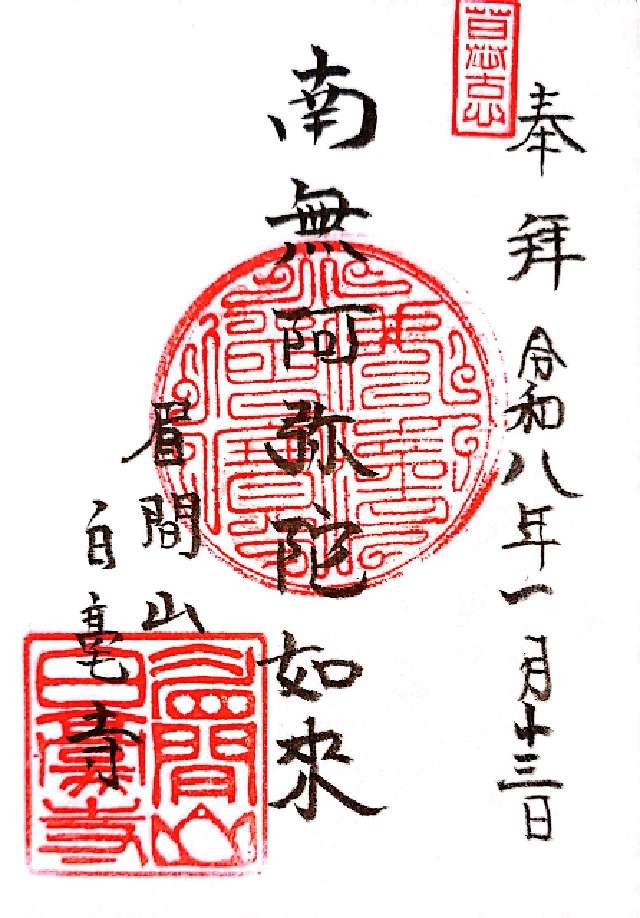 奉拜
令和八年一月十三日
南無阿弥陀如來
眉間山
白毫寺
眉間山
白毫寺